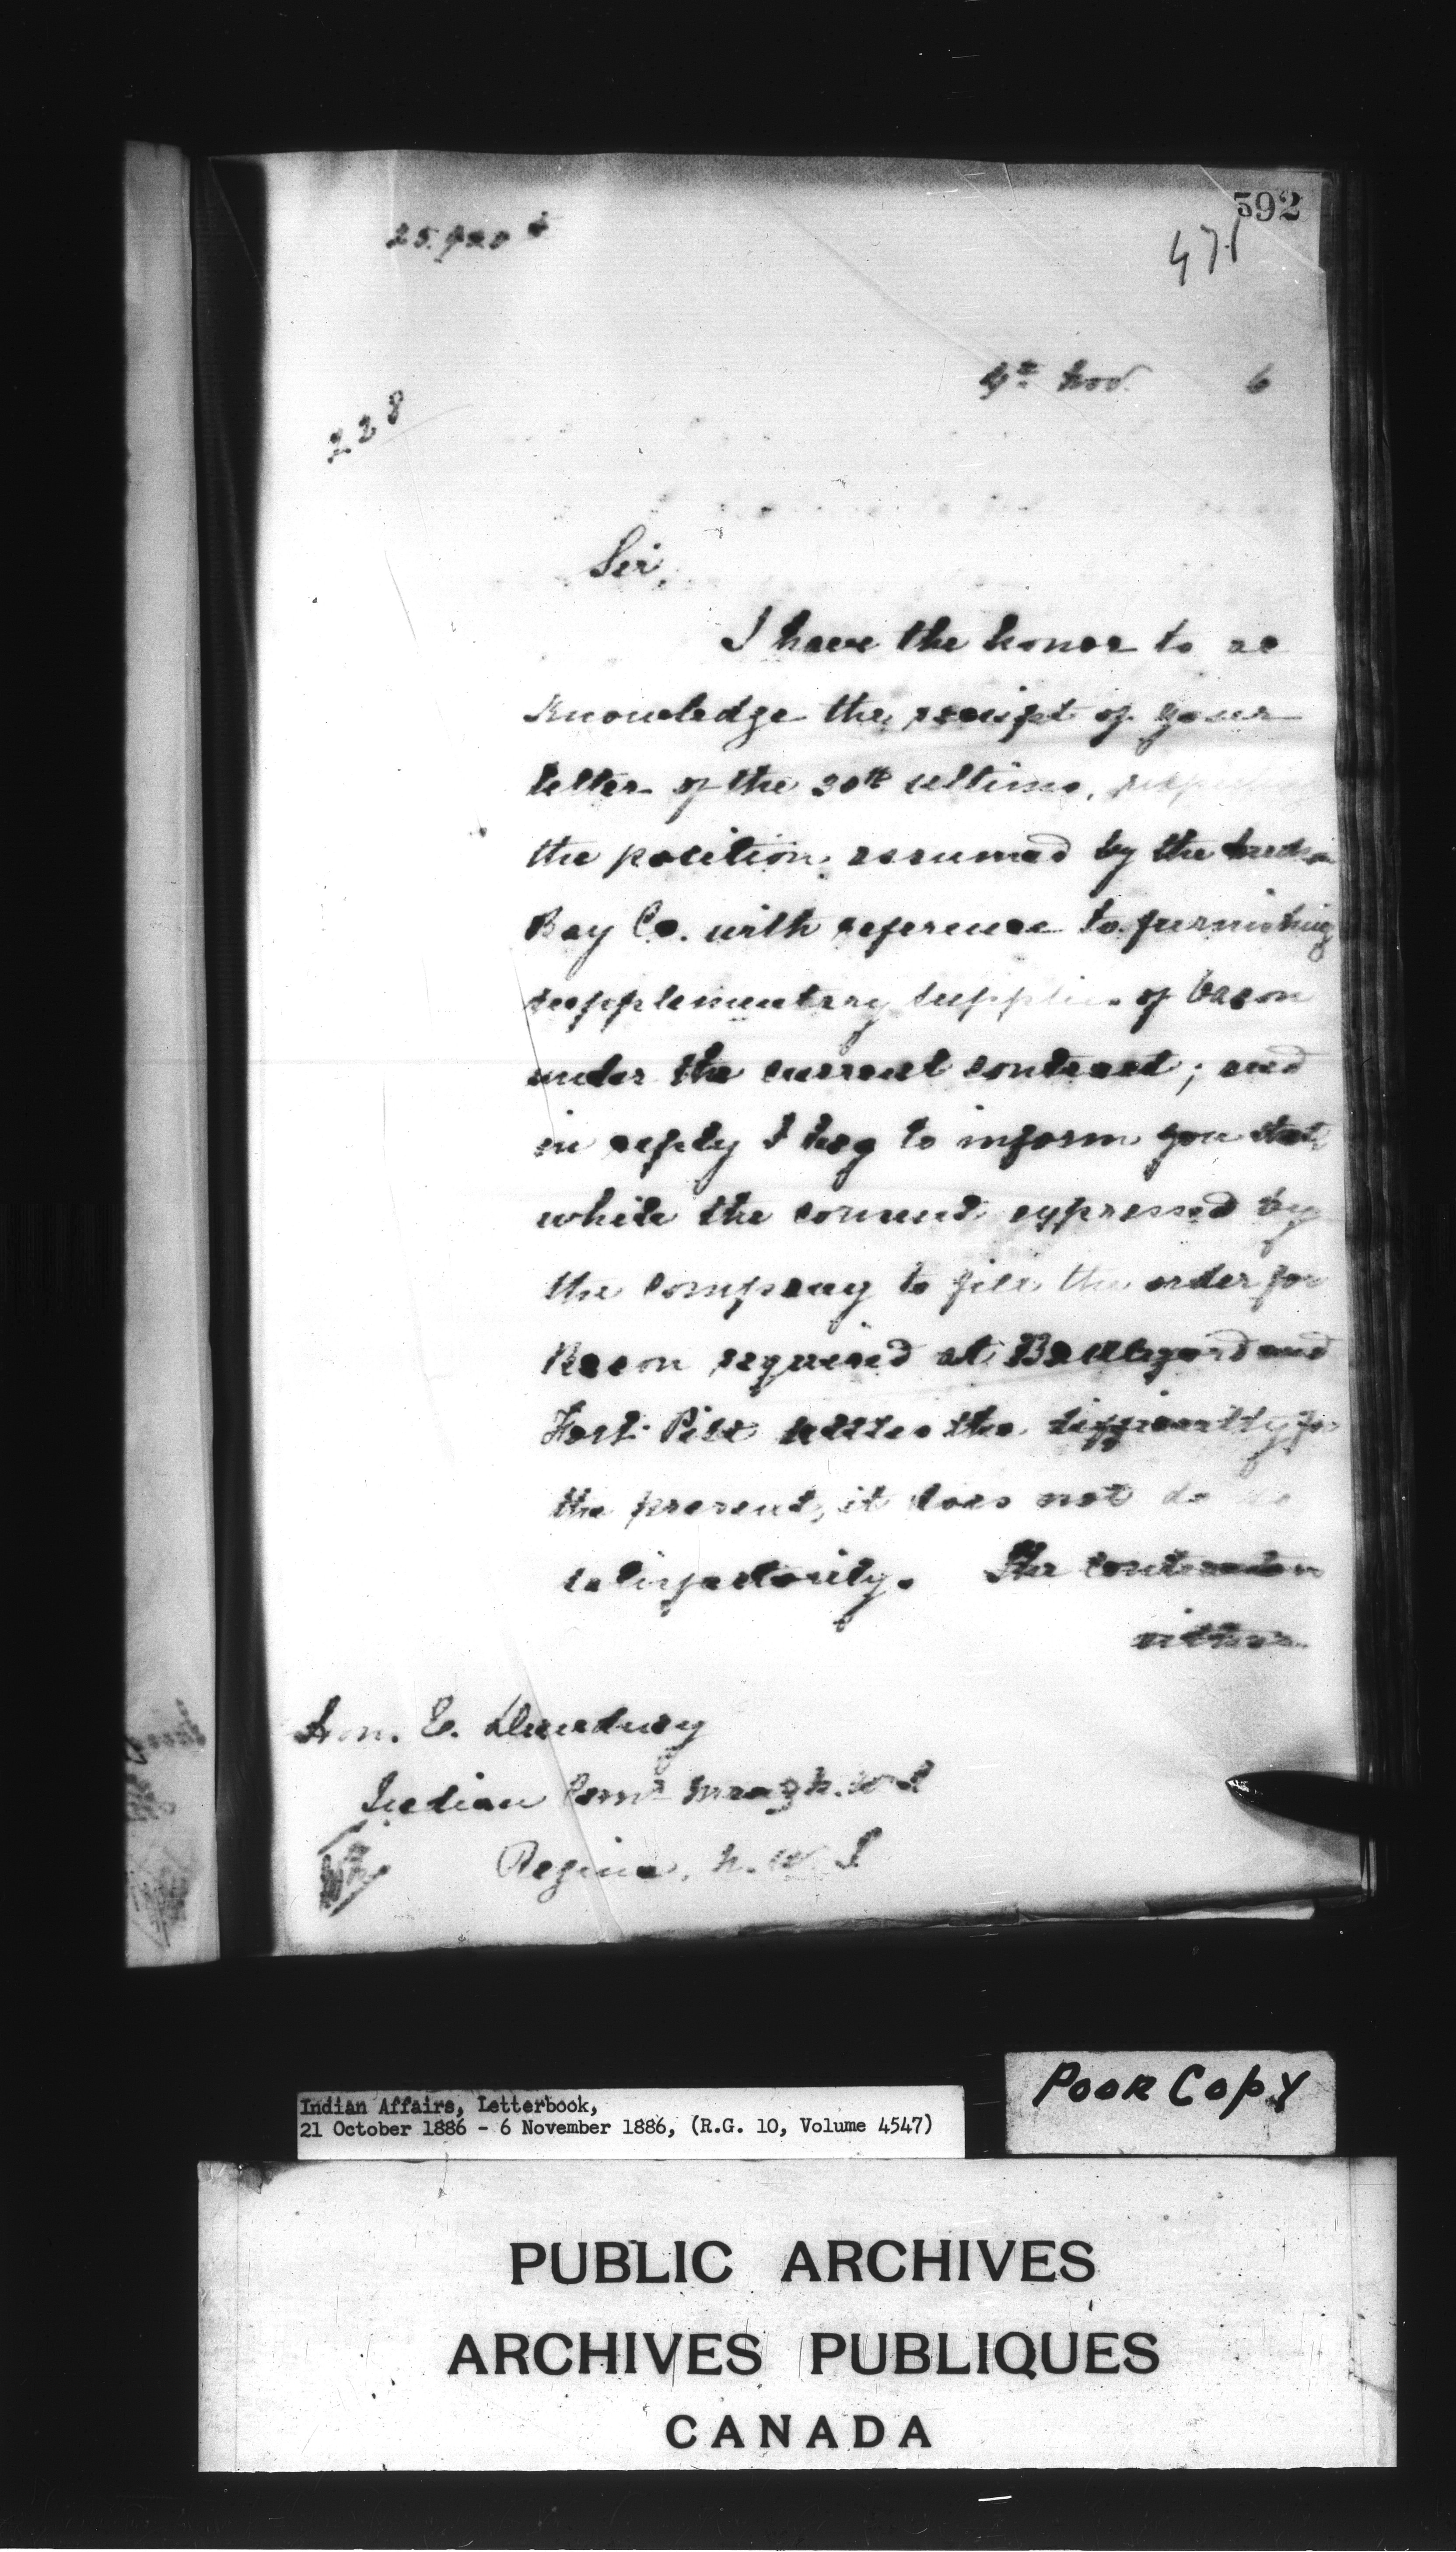 592
471
4th Nov. 6
228
Sir,
I have the honor to ac
knowledge the receipt of your
letter of the 30th ultimo, respecting
the position assumed by the Hudson
Bay Co. with reference to furnishing
supplementary supplies of bacon
under the current contract; and
in reply I beg to inform you that
while the consent expressed by
the Company to fill the order for
Bacon required at Battleford and
Fort Pitt settles the difficulty for
the present, it does not do so
satisfactorily. The contention
Hon. E. Dewdney
Indian Comr Man & N.W.T
Regina, N.W.T
Poor Copy
Indian Affairs, Letterbook,
21 October 1886 - 6 November 1886, (R.G. 10, Volume 4547)
PUBLIC ARCHIVES
ARCHIVES PUBLIQUES
CANADA